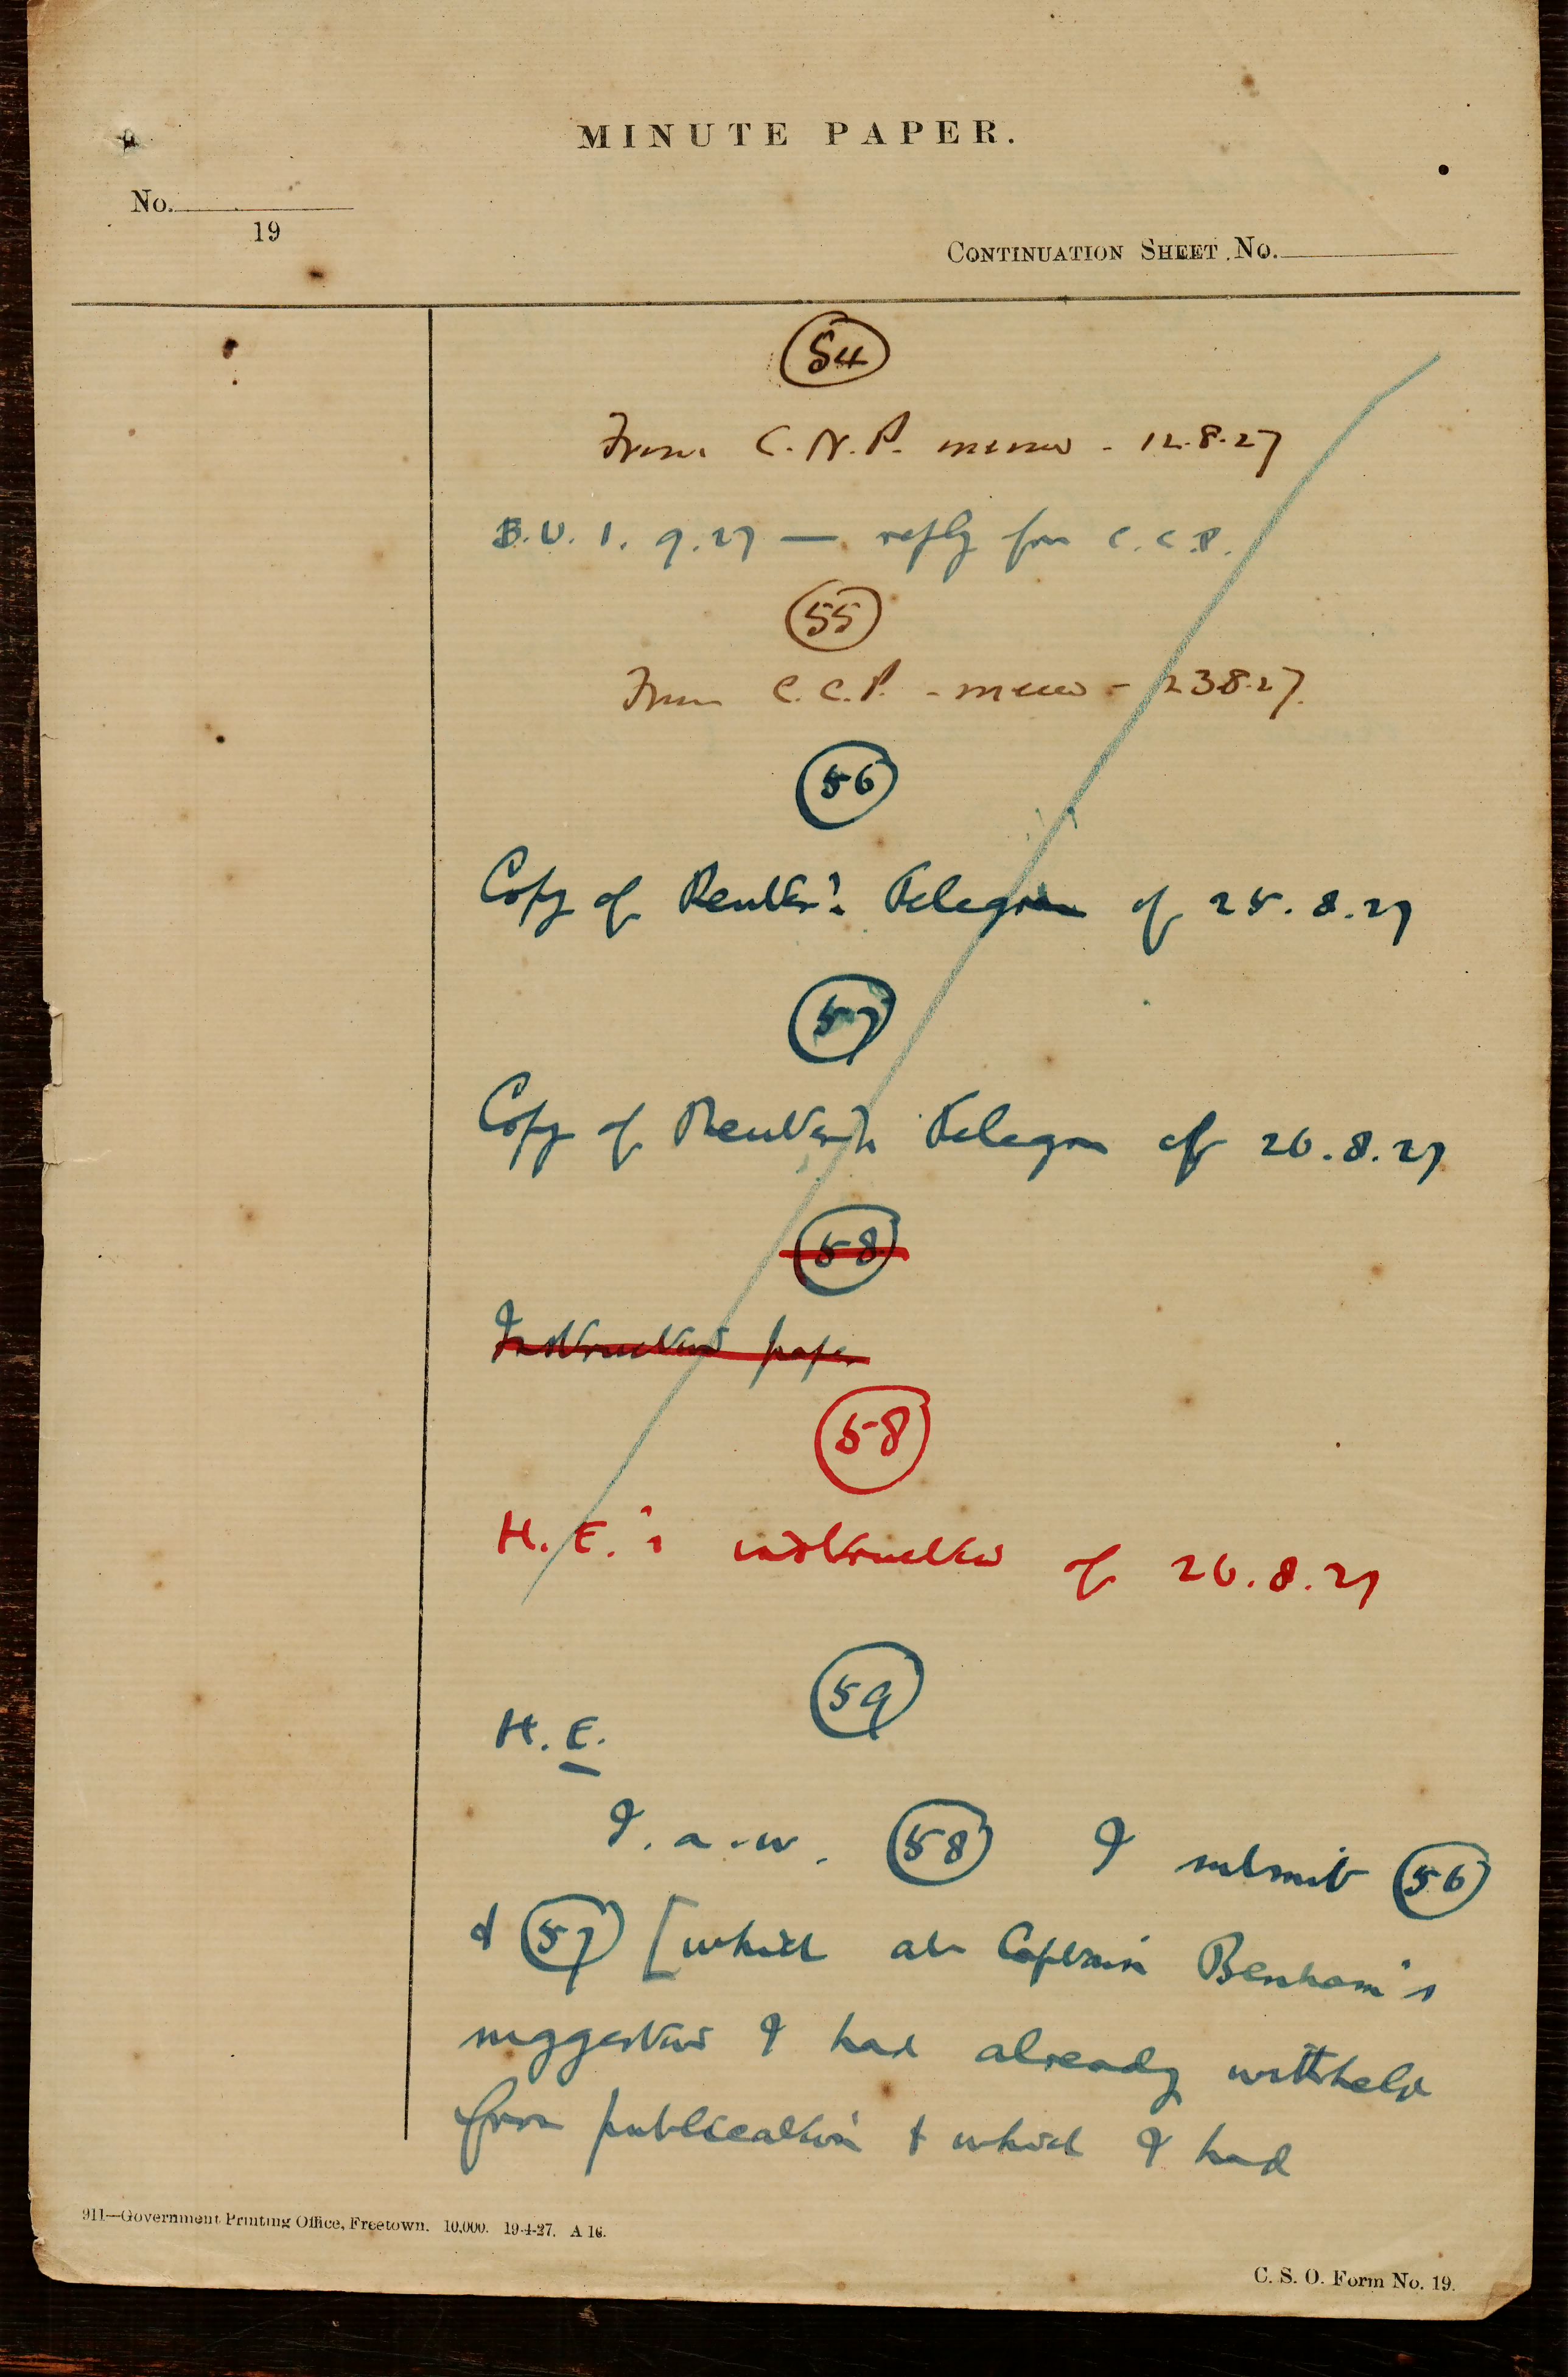 MINUTE PAPER.
No.
19
CONTINUATION SHEET No.
54
From C.N.P. memo - 12.8.27
B.U. 1. 9.27 — reply from C.C.P.
55
From C.C.P. - memo - 23.8.27.
56
Copy of Reuter's Telegram of 25.8.27
57
Copy of Reuter's Telegram of 26.8.27
58
Instruction paper
58
H.E.'s instruction of 26.8.27
59
H.E.
I.a.w. 58 I submit 56
& 57 [which at Captain Benham's
suggestion I had already withheld
from publication & which I had
911—Government Printing Office, Freetown. 10,000. 19-4-27. A 16.
C. S. O. Form No. 19.